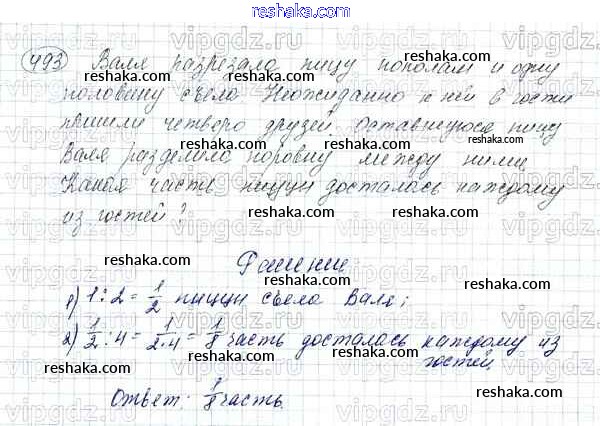 reshaka.com
493 Валя разрезала пиццу пополам и одну
половину съела. Неожиданно к ней в гости
пришли четверо друзей. Оставшуюся пиццу
Валя разделила поровну между ними.
Какая часть пиццы досталась каждому
из гостей?
Решение:
1) 1:2 = 1/2 пиццы съела Валя;
2) 1/2 : 4 = 1/2·4 = 1/8 часть досталась каждому из
гостей.
Ответ: 1/8 часть.
reshaka.com
vipgdz.com